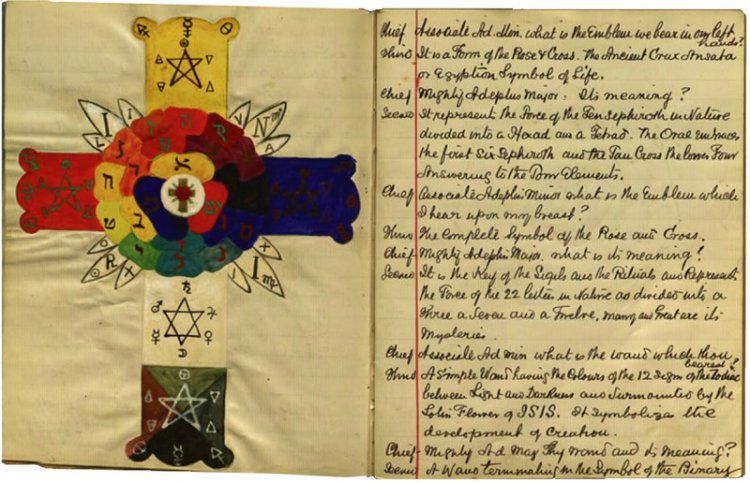 I N
R I
Chief Associate Ad. Min. what is the Emblem we bear in our left
hands?
It is a Form of the Rose & Cross. The Ancient Crux Ansata
or Egyptian Symbol of Life.
Chief Mighty Adeptus Major. Its meaning?
It represents the Force of the Ten Sephiroth in Nature
divided into a Hexad and a Tetrad. The Oval Embraces
the first Six Sephiroth and the Tau Cross the lower Four
Answering to the Elements.
Chief Associate Adeptus Minor what is the Emblem which
I bear upon my breast?
The Complete Symbol of the Rose and Cross.
Chief Mighty Adeptus Major. what is its meaning?
It is the Key of the Sigils and the Rituals and Represents
the Force of the 22 letters in Nature as divided into a
Three a Seven and a Twelve, many and Great are its
Mysteries.
Chief Associate Ad min what is the wand which thou
bearest?
A Simple Wand having the Colours of the 12 Signs of the Zodiac
between Light and Darkness and Surmounted by the
Lotus Flower of ISIS. It Symbolizes the
development of Creation.
Chief Mighty Ad Maj Thy wand and its meaning?
A Wand terminating in the Symbol of the Binary